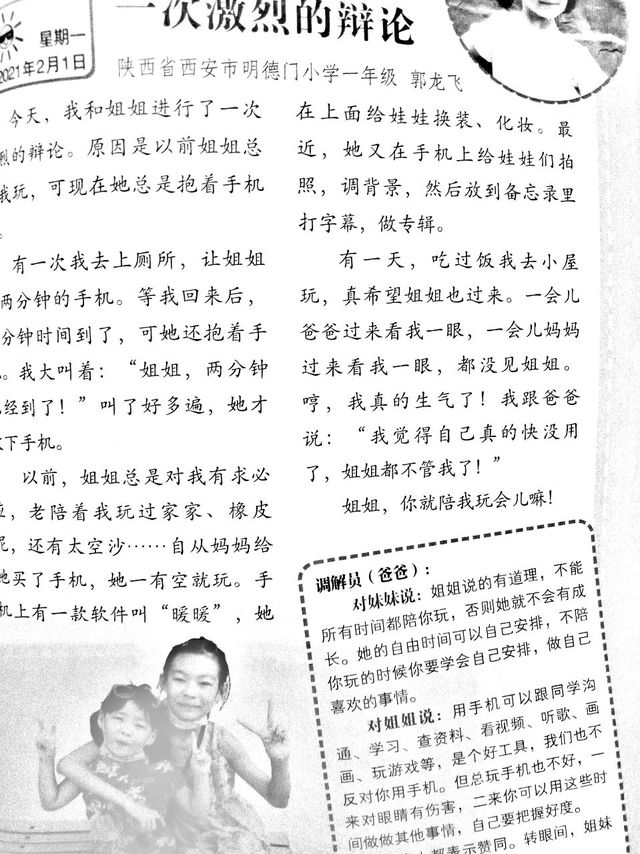 一次激烈的辩论
星期一
2021年2月1日
陕西省西安市明德门小学一年级 郭龙飞
今天，我和姐姐进行了一次
烈的辩论。原因是以前姐姐总
我玩，可现在她总是抱着手机
。
有一次我去上厕所，让姐姐
两分钟的手机。等我回来后，
分钟时间到了，可她还抱着手
。我大叫着：“姐姐，两分钟
经到了！”叫了好多遍，她才
下手机。
以前，姐姐总是对我有求必
，老陪着我玩过家家、橡皮
泥，还有太空沙……自从妈妈给
她买了手机，她一有空就玩。手
机上有一款软件叫“暖暖”，她
在上面给娃娃换装、化妆。最
近，她又在手机上给娃娃们拍
照，调背景，然后放到备忘录里
打字幕，做专辑。
有一天，吃过饭我去小屋
玩，真希望姐姐也过来。一会儿
爸爸过来看我一眼，一会儿妈妈
过来看我一眼，都没见姐姐。
哼，我真的生气了！我跟爸爸
说：“我觉得自己真的快没用
了，姐姐都不管我了！”
姐姐，你就陪我玩会儿嘛！
调解员（爸爸）：
对妹妹说：姐姐说的有道理，不能
所有时间都陪你玩，否则她就不会有成
长。她的自由时间可以自己安排，不陪
你玩的时候你要学会自己安排，做自己
喜欢的事情。
对姐姐说：用手机可以跟同学沟
通、学习、查资料、看视频、听歌、画
画、玩游戏等，是个好工具，我们也不
反对你用手机。但总玩手机也不好，一
来对眼睛有伤害，二来你可以用这些时
间做做其他事情，自己要把握好度。
都表示赞同。转眼间，姐妹